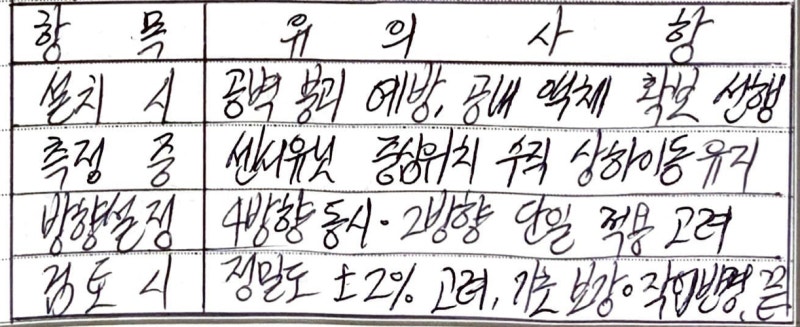 항 목 유 의 사 항
설치 시 공벽 붕괴 예방, 공내 액체 확보 선행
측정 중 센서유닛 중심위치 수직 상하이동 유지
방향설정 4방향 동시·2방향 단일 적용 고려
검토 시 정밀도 ±2% 고려, 기초 보강·작업반영, 끝